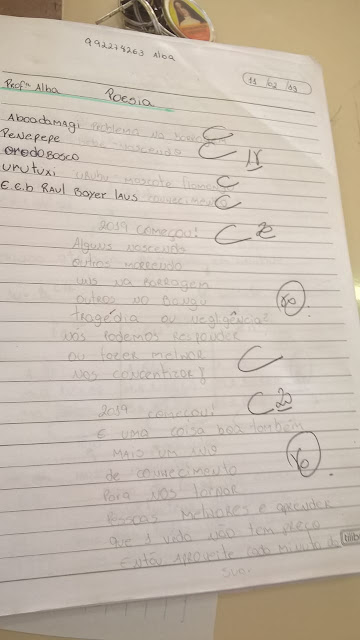 992274263 Alba
11 / 02 / 19
Profª Alba Poesia
Aboodamagi problema na barragem C
Penepepe nascendo C 18
oredobosco C
urutuxi urubu mascote C
E.E.b Raul Boyer Laus conhecimento C
2019 começou! C 2
Alguns nascendo
outros morrendo
uns na barragem
outros no Bangu 10
tragédia ou negligência?
nós podemos responder
ou fazer melhor C
nos concentizar?
2019 começou! C 2
E uma coisa boa também
mais um ano 10
de conhecimento
Para nos tornar
pessoas melhores e aprender
que a vida não tem preço
Então aproveite cada minuto da tilibra
sua.